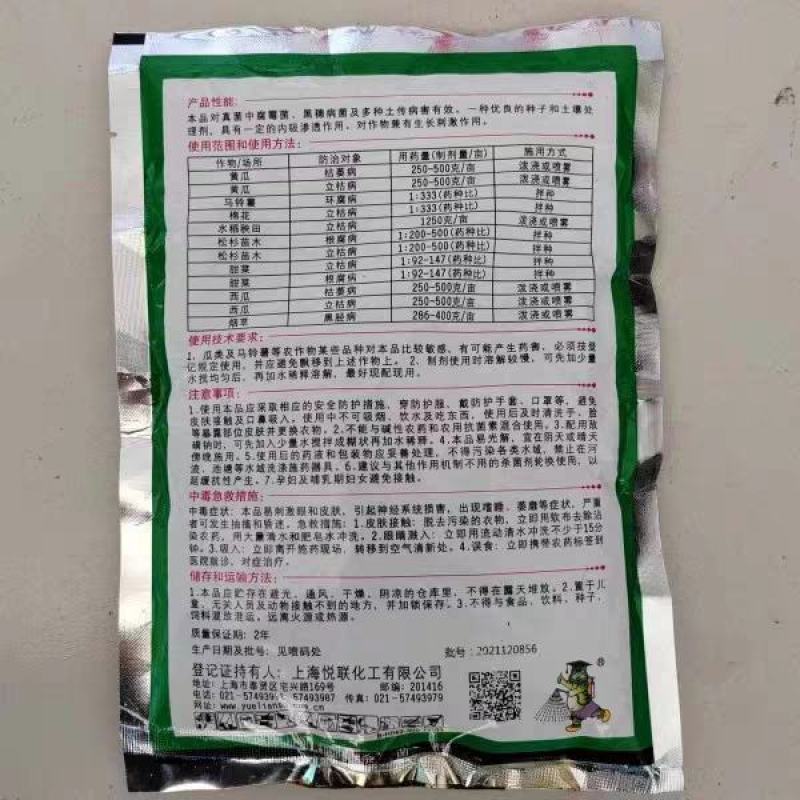 产品性能:
本品对真菌中腐霉菌、黑穗病菌及多种土传病害有效。一种优良的种子和土壤处
理剂,具有一定的内吸渗透作用。对作物兼有生长刺激作用。
使用范围和使用方法:
作物/场所 防治对象 用药量(制剂量/亩) 施用方式
黄瓜 枯萎病 250-500克/亩 泼浇或喷雾
黄瓜 立枯病 250-500克/亩 泼浇或喷雾
马铃薯 环腐病 1:333(药种比) 拌种
棉花 立枯病 1:333(药种比) 拌种
水稻秧田 立枯病 1250克/亩 泼浇或喷雾
松杉苗木 根腐病 1:200-500(药种比) 拌种
松杉苗木 立枯病 1:200-500(药种比) 拌种
甜菜 立枯病 1:92-147(药种比) 拌种
甜菜 根腐病 1:92-147(药种比) 拌种
西瓜 枯萎病 250-500克/亩 泼浇或喷雾
西瓜 立枯病 250-500克/亩 泼浇或喷雾
烟草 黑胫病 286-400克/亩 泼浇或喷雾
使用技术要求:
1、瓜类及马铃薯等农作物某些品种对本品比较敏感,有可能产生药害,必须按登
记规定使用,并应避免飘移到上述作物上。2、制剂使用时溶解较慢,可先加少量
水搅均匀后,再加水稀释溶解,最好现配现用。
注意事项:
1.使用本品应采取相应的安全防护措施,穿防护服、戴防护手套、口罩等,避免
皮肤接触及口鼻吸入。使用中不可吸烟、饮水及吃东西,使用后及时清洗手、脸
等暴露部位皮肤并更换衣物。2.不能与碱性农药和农用抗菌素混合使用。3.配用敌
磺钠时,可先加入少量水搅拌成糊状再加水稀释。4.本品易光解,宜在阴天或晴天
傍晚施用。5.使用后的药液和包装物应妥善处理,不得污染各类水域,禁止在河
流、池塘等水域洗涤施药器具。6.建议与其他作用机制不同的杀菌剂轮换使用,以
延缓抗性产生。7.孕妇及哺乳期妇女避免接触。
中毒急救措施:
中毒症状:本品易刺激眼和皮肤,引起神经系统损害,出现嗜睡、萎靡等症状,严重
者可发生抽搐和昏迷。急救措施:1.皮肤接触:脱去污染的衣物,立即用软布去除沾
染农药,用大量清水和肥皂水冲洗。2.眼睛溅入:立即用流动清水冲洗不少于15分
钟。3.吸入:立即离开施药现场,转移到空气清新处。4.误食:立即携带农药标签到
医院就诊,对症治疗。
储存和运输方法:
1.本品应贮存在避光、通风、干燥、阴凉的仓库里,不得在露天堆放。2.置于儿
童、无关人员及动物接触不到的地方,并加锁保存。3.不得与食品、饮料、种子、
饲料混放混运,远离火源或热源。
质量保证期:2年
生产日期及批号:见喷码处 批号:2021120856
登记证持有人:上海悦联化工有限公司
地址:上海市奉贤区宅兴路169号 邮编:201416
电话:021-57493987 传真:021-57493979
®